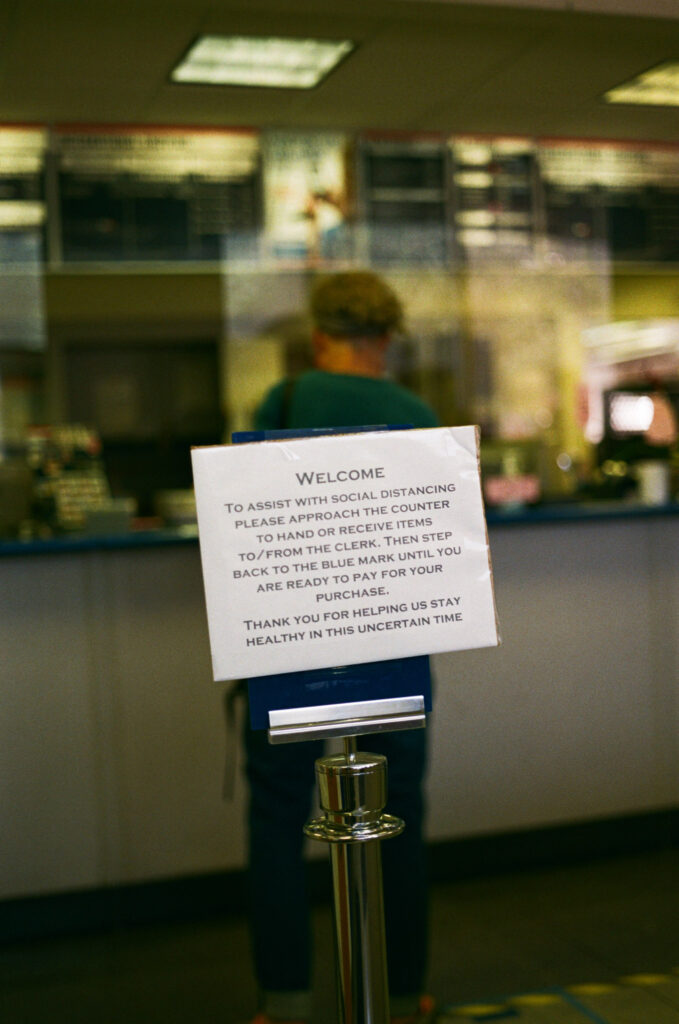 WELCOME
TO ASSIST WITH SOCIAL DISTANCING
PLEASE APPROACH THE COUNTER
TO HAND OR RECEIVE ITEMS
TO/FROM THE CLERK. THEN STEP
BACK TO THE BLUE MARK UNTIL YOU
ARE READY TO PAY FOR YOUR
PURCHASE.
THANK YOU FOR HELPING US STAY
HEALTHY IN THIS UNCERTAIN TIME